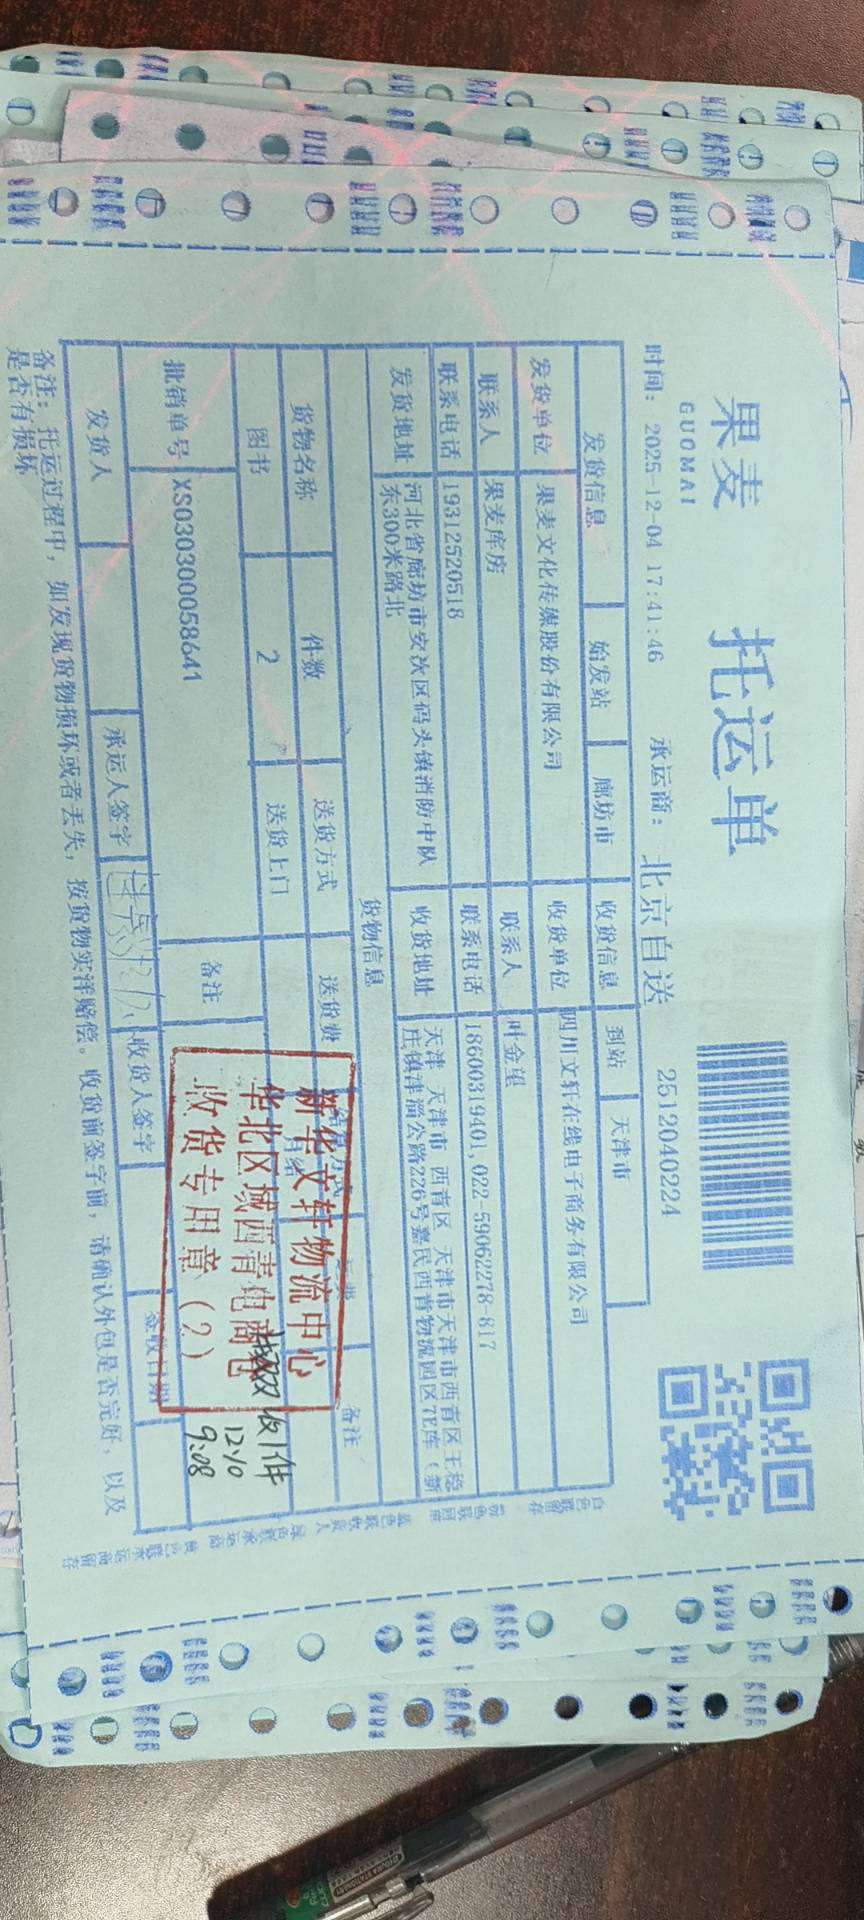 果麦 托运单
GUOMAI
时间：2025-12-04 17:41:46 承运商：北京自送 2512040224
发货信息 始发站 廊坊市 收货信息 到站 天津市
发货单位 果麦文化传媒股份有限公司 收货单位 四川文轩在线电子商务有限公司
联系人 果麦库房 联系人 叶金望
联系电话 19312520518 联系电话 18600319401,022-59062278-817
发货地址 河北省廊坊市安次区码头镇消防中队东300米路北 收货地址 天津 天津市 西青区 天津市天津市西青区王稳庄镇津淄公路226号嘉民西青物流园区7E库（新
货物信息
货物名称 件数 送货方式 送货费 备注
图书 2 送货上门 月结
批销单号 XS030300058641 备注
发货人 承运人签字 收货人签字 签收日期
备注：托运过程中，如发现货物损坏或者丢失，按货物实洋赔偿。收货前签字前，请确认外包是否完好，以及
是否有损坏
新华文轩物流中心
华北区域西青电商仓
收货专用章（2）
收1件
12.10
9:08
白色联留存
粉色联回库
蓝色联收货人
绿色联承运商
黄色联承运商留存